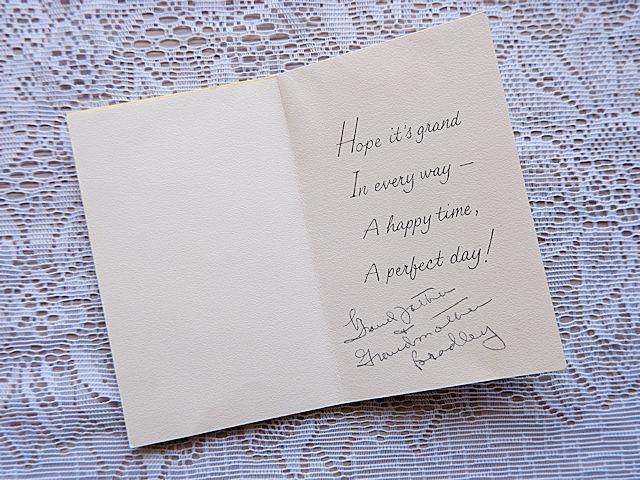 Hope it's grand
In every way —
A happy time,
A perfect day!
Grandfather
+
Grandmother
Bradley